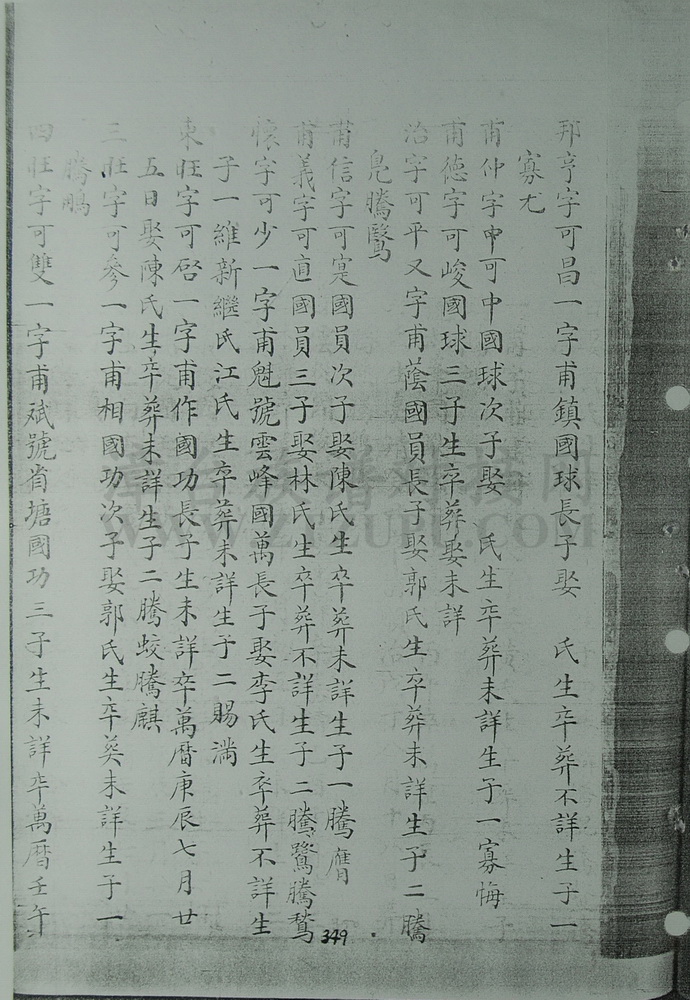 邦亨字可昌一字甫鎮國球長子娶　氏生卒葬不詳生子一
寡尤
甫仲字中可中國球次子娶　氏生卒葬未詳生子一寡悔
甫德字可峻國球三子生卒葬娶未詳
治字可平又字甫蔭國員長子娶郭氏生卒葬未詳生子二騰
凫騰鷖
甫信字可寔國員次子娶陳氏生卒葬未詳生子一騰鷹
甫義字可直國員三子娶林氏生卒葬不詳生子二騰鷺騰鶩
懷字可少一字甫魁號雲峰國萬長子娶李氏生卒葬不詳生
子一維新繼氏江氏生卒葬未詳生子二賜滿
東旺字可啓一字甫作國功長子生未詳卒萬曆庚辰七月廿
五日娶陳氏生卒葬未詳生子二騰蛟騰麒
三旺字可參一字甫相國功次子娶郭氏生卒葵未詳生子一
騰鵬
四旺字可雙一字甫斌號省塘國功三子生未詳卒萬曆壬午
349
WWW.ZTZUPU.COM